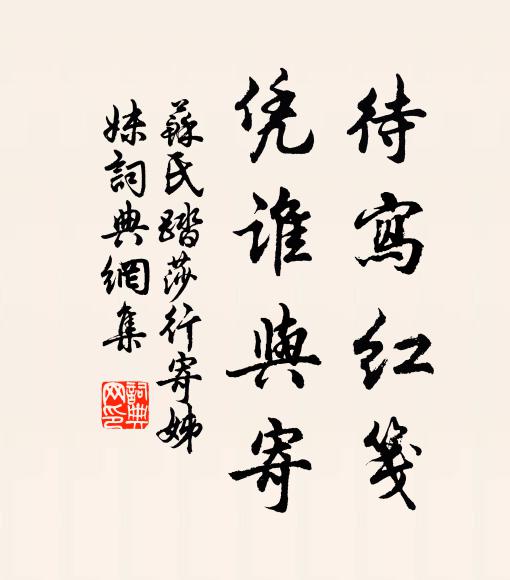 待寫红箋
凭谁與寄
蘇氏踏莎行寄姊
妹詞典網集
詞典网印